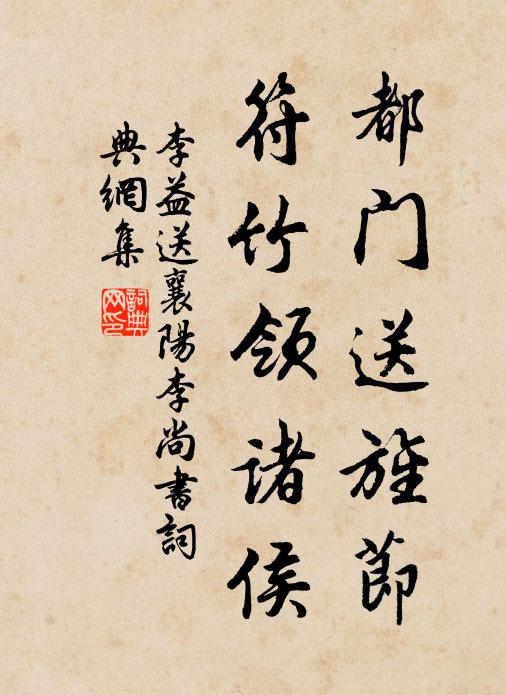 都门送旌節
符竹领诸侯
李益送襄陽李尚書詞
典網集
詞典
网印